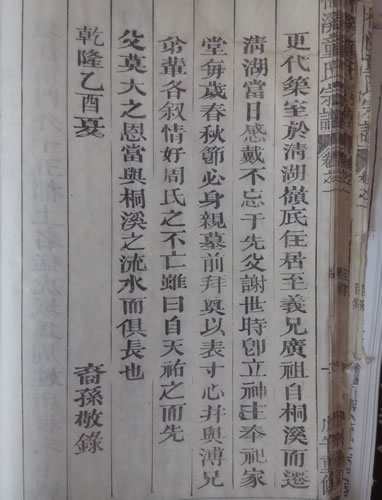 更代築室於淸湖嶺底住居至義兄廣祖自桐溪而遷
淸湖當日感戴不忘于先父謝世時卽立神主奉祀家
堂每歲春秋節必身親墓前拜奠以表寸心幷與溥兄
爺輩各叙情好周氏之不亡雖曰自天祐之而先
父莫大之恩當與桐溪之流水而俱長也
乾隆乙酉夏
裔孫敬錄
桐溪童氏宗譜
卷之一